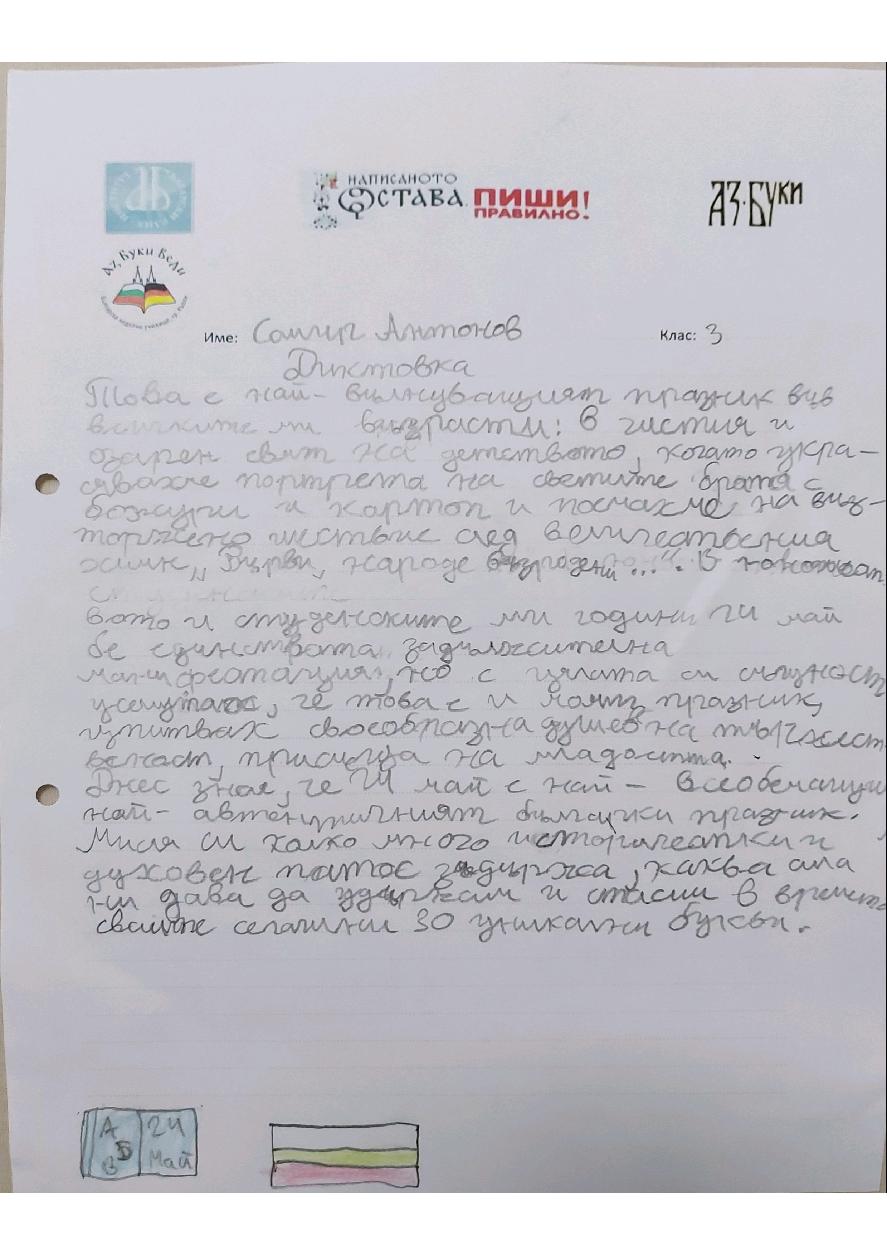 НАПИСАНОТО
ОСТАВА
ПИШИ!
ПРАВИЛНО!
АЗ·БУКИ
Аз, Буки Веди
Име: Антонов
Клас: 3
Диктовка
Това е най- вълнуващият празник във
всичките ми възрасти: В чистия и
озарен свят на детството, когато укра-
сявахме портрета на светите братя с
божури и картон и поемахме, на въз-
торжено шествие след величествения
химн „Върви, народе възродени...". В
вото и студенските ми години 24 май
бе единствата задължителна
манифестация, но с цялата си същност
усещах, че това е и моят празник,
изпитвах своеобразна душевна тържест
веност, присъща на младостта.
Днес зная, че 24 май е най- всеобемащия
най- автентичният български празник.
Мисля си колко много исторически и
духовен патос съдържа, каква сила
ни дава да удържим и спасим в времето
своите сегашни 30 уникални букви.
А
Б
В
24
Май